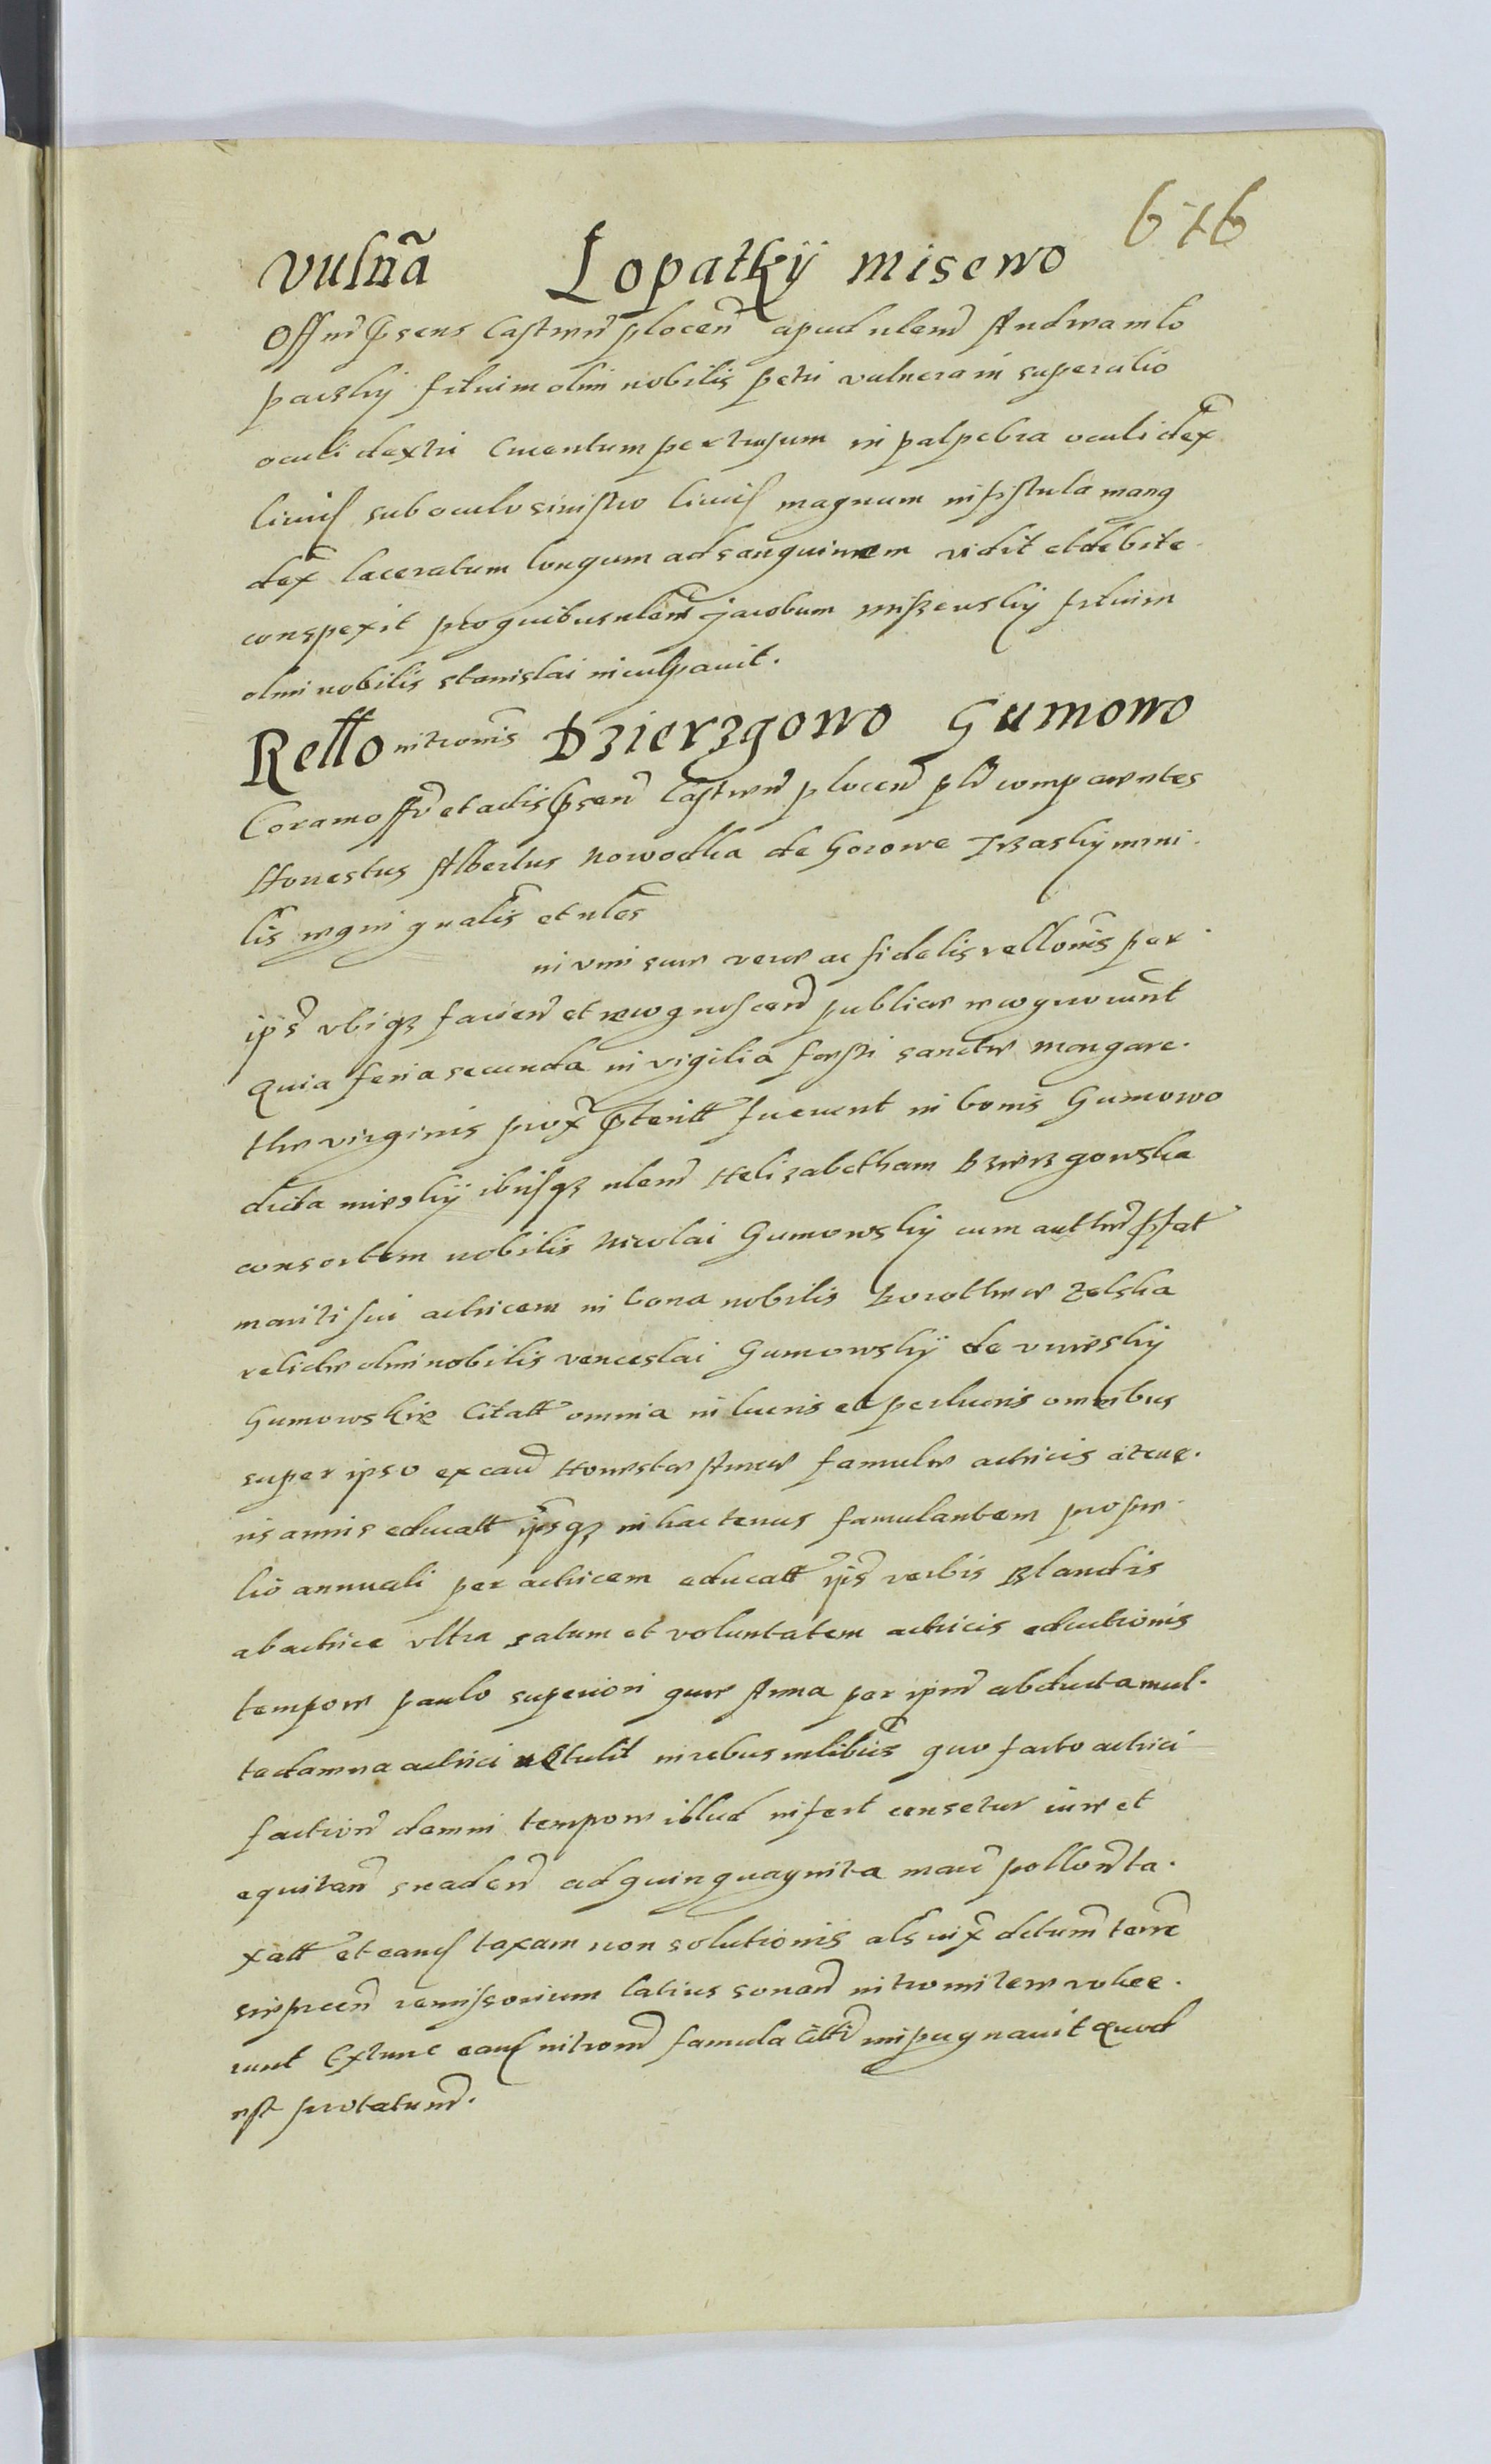 676
vulña Lopatkÿ misewo
Offm p̃sens Castren̄ plocen̄ apud nlem̄ Andream lo
paczky filium olim nobilis petri vulnera in supercilio
oculi dextri Cruentum pertusum in palpebra oculi dex̄
livid sub oculo sinistro livid magnum in fistula mang
dex̄ laceratum longum ad sanguinem vidit et debite
conspexit pro quibus nlem̄ Jacobum miszewsky filium
olim nobilis stanislai inculpavit.
Rello intromīs Dzierzgowo Gumowo
Coram off̄o et actis p̃sen̄ Castren̄ plocen̄ pl̄r comparentes
Honestus Albertus nowodka de Gorowe Trzasky mini
lis regni gnalīs et nlēs
in vim sue vere ac fidelis rellonīs per
ip̄s vbiqz faciend̄ et recognoscend̄ publice recognoverunt
Quia feria secunda in vigilia festi sancte margare
the virginis prox̄ p̃teritt̄ fuerunt in bonis Gumowo
dicta mirskÿ ibiqz nlem̄ Helizabetham Dzierzgowska
consortem nobilis Nicolai Gumowsky cum auttēm p̃fat
mariti sui actricem in bona nobilis Dorothee zelska
relicte olim nobilis venceslai Gumowskÿ de mirsky
Gumowskie Citatt omnia in lucris et perlucris omnibus
super ipso ex caū Honeste Anne famule actricis a tene
ris annis educatt ip̄sqz in hactenus famulantem pro pre
tio annuali per actricem educatt ip̄s verbis Blandis
ab actrice vltra satum et voluntatem actricis eductionis
tempore paulo superiori que Anna per ipm̄ abducta mul
ta damna actrici attulit in rebus mlibūs quo facto actrici
factum̄ damni tempore illud infert censetur iure et
equitan̄ suaden̄ ad quinquaginta marc̄ pollon̄ ta
xatt et eand taxam non solutionis als iux̄ dctum̄ terrē
sirpcen̄ remissorium latius sonan̄ intromitere volue
runt Extunc eand introm̄ famula citti impugnavit Quod
est protatum̄.